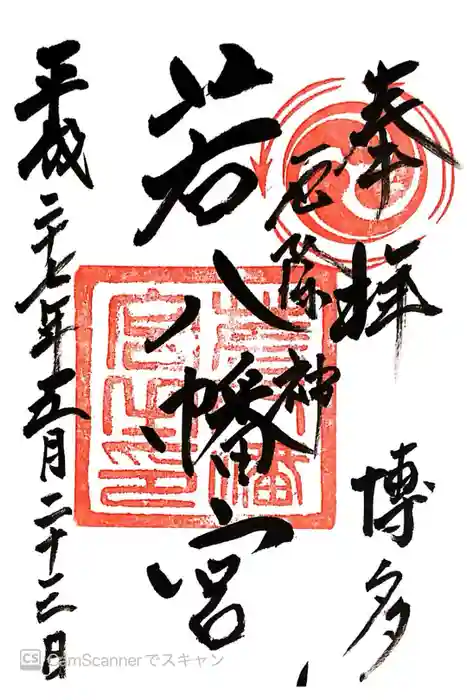 奉拝 博多
厄除神
若八幡宮
平成二十七年五月二十三日
若八幡
宮之印
CS CamScannerでスキャン